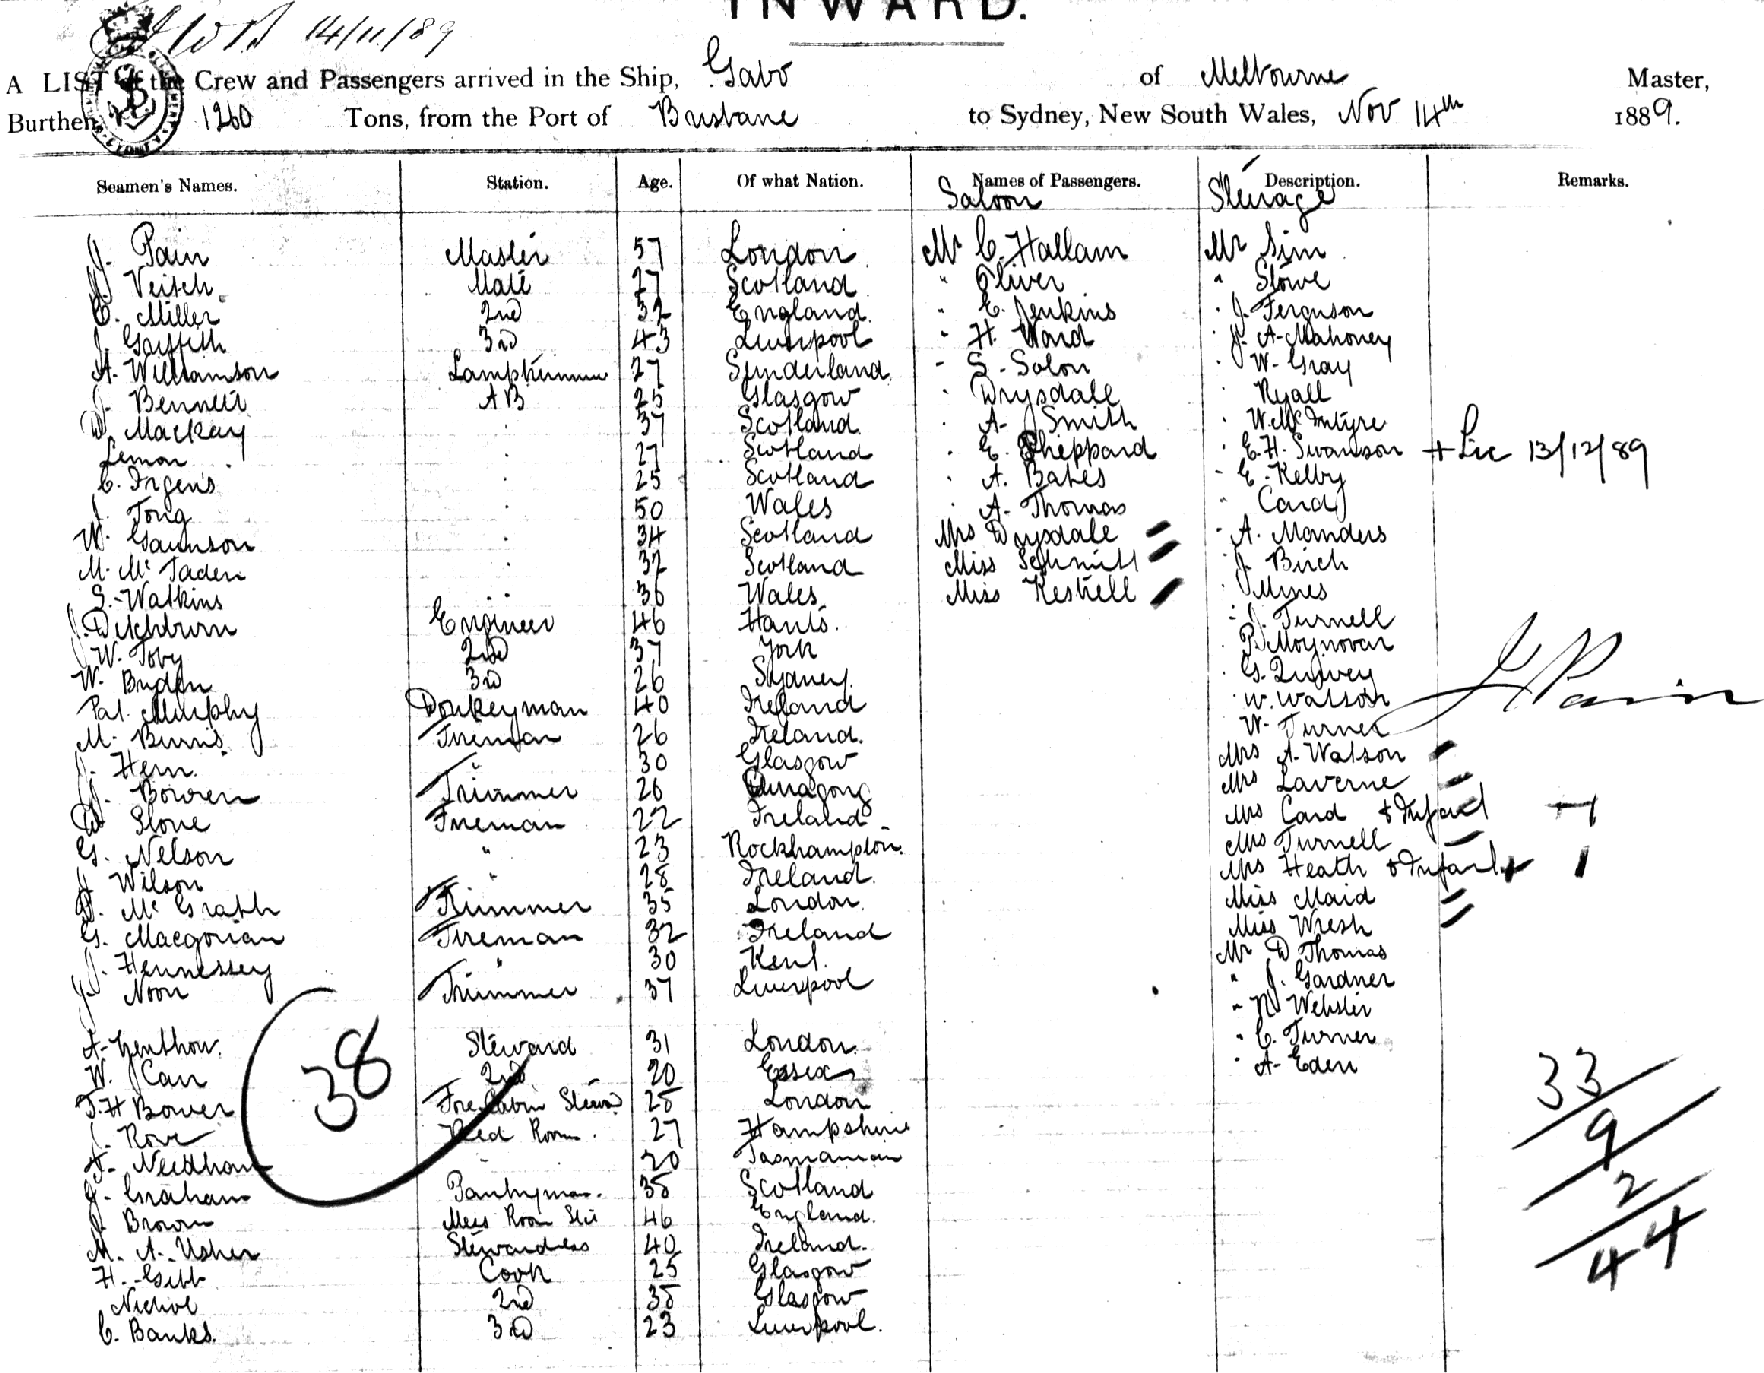 INWARD.
14/11/89
A LIST of the Crew and Passengers arrived in the Ship, Gabo of Melbourne Master,
Burthen 1260 Tons, from the Port of Brisbane to Sydney, New South Wales, Nov 14th 1889.
Seamen's Names. Station. Age. Of what Nation. Names of Passengers. Description. Remarks.
Saloon Steerage
J. Pain Master 57 London Mr C. Hallam Mr Sim
J Veitch Mate 27 Scotland " Oliver " Stowe
C. Miller 2nd 32 England " C. Jenkins " J. Ferguson
J. Griffith 3rd 43 Liverpool " H. Ward " J. A. Mahoney
A. Williamson Lamptrimmer 27 Sunderland " S. Solon " W. Gray
J. Bennett AB 25 Glasgow " Drysdale " Ryall
D. Mackay " 37 Scotland " A. J Smith " W. McIntyre
Lemon " 27 Scotland " E. Sheppard " E. H. Swanson + Lic 13/12/89
C. " 25 Scotland " A. Bates " E. Kelby
J. Tong " 50 Wales " A. Thomas " Card
W. " 34 Scotland Mrs Drysdale " A. Manders
M. Mc Faden " 32 Scotland Miss Schmidt " J. Birch
S. Watkins " 36 Wales Miss Kestell " Mines
J. Ditchburn Engineer 46 Hants. " J. Turnell
J W. Toby 2nd 37 York " P. Moynovan
W. Bryden 3rd 26 Sydney " G.
Pat. Murphy Donkeyman 40 Ireland " W. Watson J Pain
M. Burns Fireman 26 Ireland. " W. Turner
J. Hern. " 30 Glasgow Mrs A. Watson
J. Bowren Trimmer 26 Mrs Laverne
D Stone Fireman 22 Ireland Mrs Card & Infant 1
G. Nelson " 23 Rockhampton. Mrs Turnell
J Wilson " 28 Ireland. Mrs Heath & Infant 1
P. Mc Grath Trimmer 35 London. Miss Maid
G. Macgorian Fireman 32 Ireland Miss Wresh
J. Hennessey " 30 Kent. Mr D Thomas
J Noon Trimmer 37 Liverpool " J. Gardner
" N Webster
A. Steward 31 London. " C. Turner
W. Carr 2nd 20 Essex " A. Eden
38
J. H Bower Fore Cabin Stewd 25 London 33
J. Rove Bed Room. 27 Hampshire
A. Needham " 20 Tasmanian 9
J. Graham Pantryman. 35 Scotland 2
J Brown Mess Room Std 46 England.
M. A. Usher Stewardess 40 Ireland. 44
H. Gibb Cook 25 Glasgow
Nichol 2nd 35 Glasgow
C. Banks. 3rd 23 Liverpool.